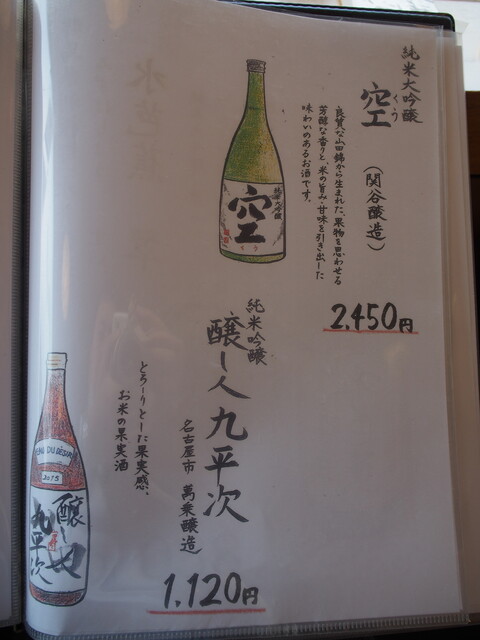 純米大吟醸
空
くう
(関谷醸造)
良質な山田錦から生まれた、果物を思わせる
芳醇な香りと、米の旨み・甘味を引き出した
味わいのあるお酒です。
2,450円
純米大吟醸
空
くう
純米吟醸
醸し人九平次
名古屋市 萬乗醸造
とろーりとした果実感、
お米の果実酒
1,120円
EAU DU DÉSIR
2015
醸し人
九平次